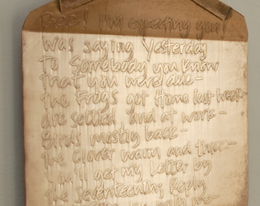 I'm expecting you!
Was saying Yesterday
To Somebody you know
That you were due—
The Frogs got Home last Week—
are settled and at work—
Birds mostly back—
The Clover warm and thick—
You'll get my Letter by
The Seventeenth; Reply